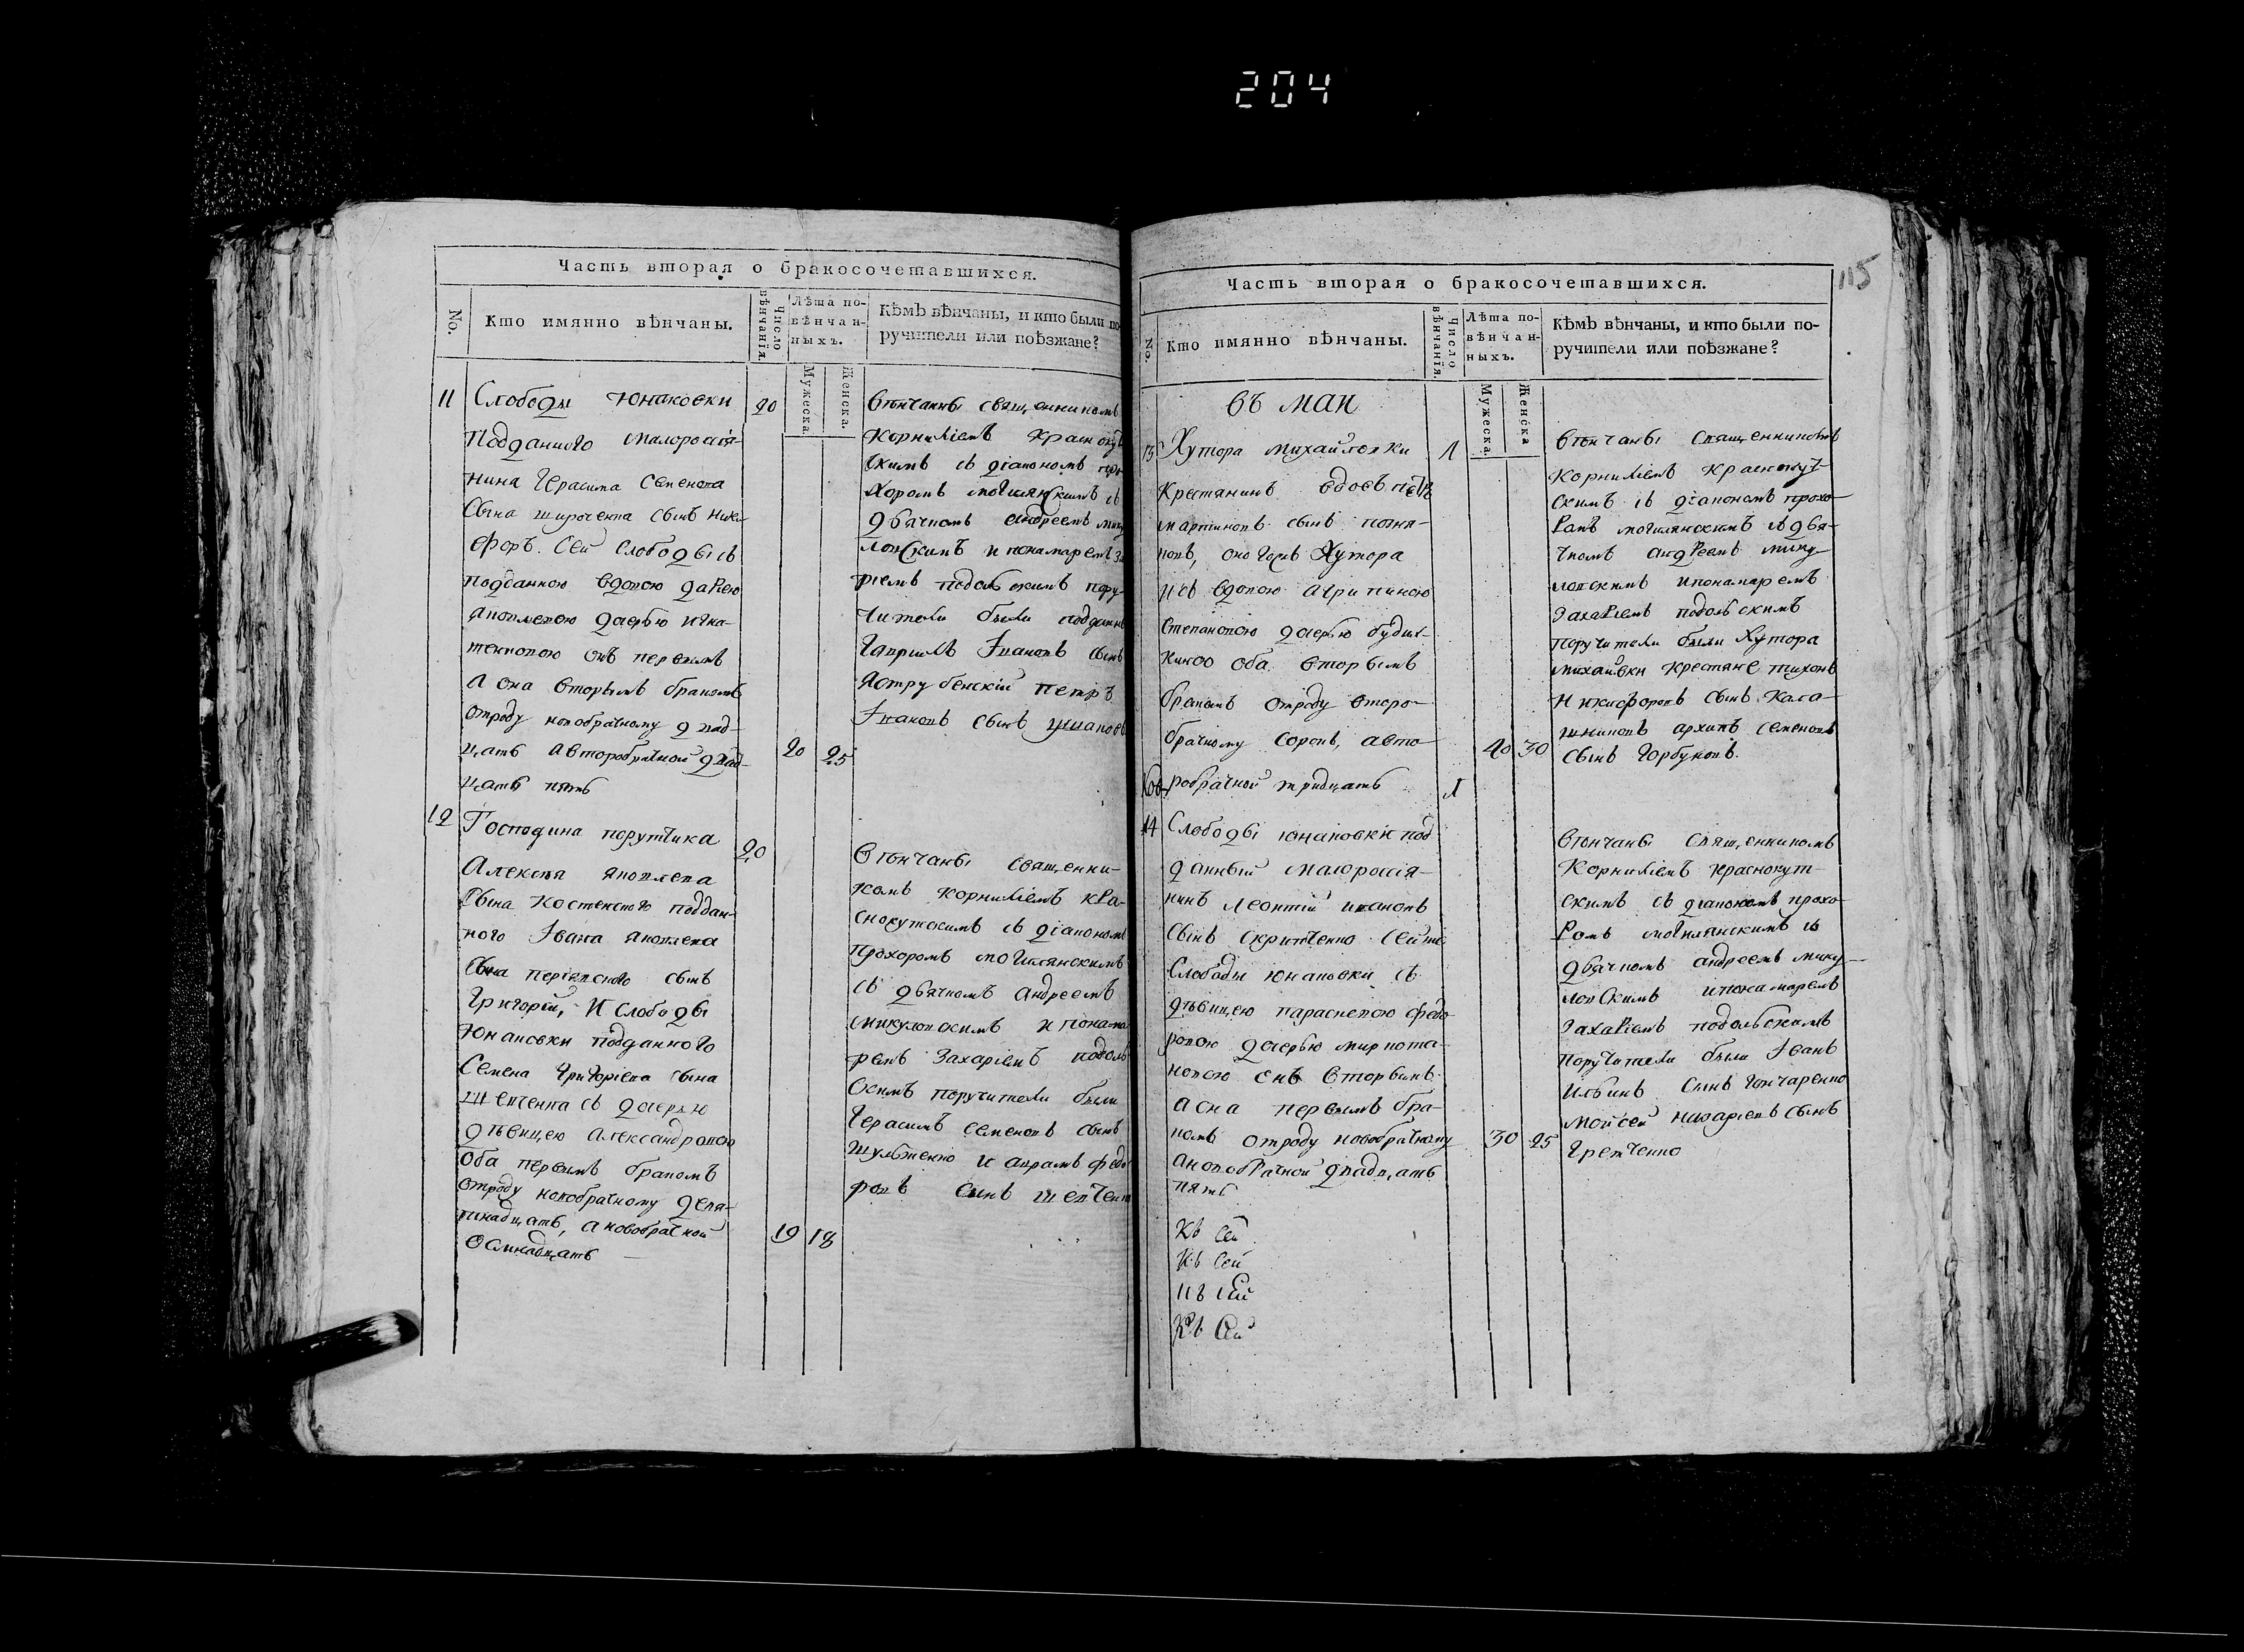 204
115
Часть вторая о бракосочетавшихся.
No.
Кто имянно вѣнчаны.
Число вѣнчанія.
Лѣта по-
вѣнчан-
ныхъ.
Мужеска.
Женска.
Кѣмъ вѣнчаны, и кто были по
ручители или поѣзжане?
11
Слободы Юнаковки
20
подданного малоросія-
нина Герасима Семенова
сына сынъ Ники-
форъ. Сей слободы съ
подданною вдовою Дариею
Яковлевою дочерью Игна-
тенковою онъ первымъ
а она вторымъ бракомъ
отроду новобрачному двад-
цать авторобрачной двад-
цать пять
20
25
Вѣнчаны священникомъ
Корниліемъ Краснокут
скимъ съ діакономъ Про
хоромъ Могилянскимъ съ
дьячкомъ Андреемъ Мику
ловскимъ и понамаремъ За
ріемъ Подольскимъ пору
чители были подданн
Гавріилъ Івановъ сынъ
Яструбенскій Петръ
Івановъ сынъ
12
Господина порутчика
20
Алексѣя Яковлева
сына поддан-
ного Ивана Яковлева
сына сынъ
Григорій, и слободы
Юнаковки подданного
Семена Григоріева сына
съ дочерью
дѣвицею Александрою
оба первымъ бракомъ
отроду новобрачному девя-
тнадцать, а новобрачной
осмнадцать
19
18
Вѣнчаны священни-
комъ Корниліемъ Кра-
снокутскимъ съ діакономъ
Прохоромъ Могилянскимъ
съ дьячкомъ Андреемъ
Микуловскимъ и понама
ремъ Захаріемъ Подоль
скимъ поручители были
Герасимъ Семеновъ сынъ
и Аврамъ Федо
ровъ сынъ
Часть вторая о бракосочетавшихся.
No.
Кто имянно вѣнчаны.
Число вѣнчанія.
Лѣта по-
вѣнчан-
ныхъ.
Мужеска.
Женска
Кѣмъ вѣнчаны, и кто были по-
ручители или поѣзжане?
въ маи
13
Хутора Михайловки
1
крестянинъ вдовъ Петръ
Мартиновъ сынъ
оногожъ хутора
и съ вдовою Агрипиною
Степановою дочерью
оба вторымъ
бракомъ отроду второ-
брачному сорокъ, авто-
робрачной тридцать
40
30
Вѣнчаны священникомъ
Корниліемъ Краснокут-
скимъ съ діакономъ Прохо-
ромъ Могилянскимъ съ дья-
чкомъ Андреемъ Мику-
ловскимъ и понамаремъ
Захаріемъ Подольскимъ
поручители были хутора
Михайвки крестяне Тихонъ
Никифоровъ сынъ
Архипъ Семеновъ
сынъ Горбуновъ.
14
Слободы Юнаковки под
1
данный малоросія-
нинъ Леонтій Ивановъ
сынъ
слободы Юнаковки съ
дѣвицею Параскевою Федо
ровою дочерью
онъ вторымъ
а она первымъ бра-
комъ отроду новобрачному
а новобрачной двадцать
пять
30
25
Вѣнчаны священникомъ
Корниліемъ Краснокут-
скимъ съ діакономъ Прохо-
ромъ Могилянскимъ съ
дьячкомъ Андреемъ Мику-
ловскимъ и понамаремъ
Захаріемъ Подольскимъ
поручители были Іванъ
Ильинъ сынъ Гончаренко
Мойсей Назаріевъ сынъ
Гретченко
Къ сей
Къ сей
Къ сей
Къ сей